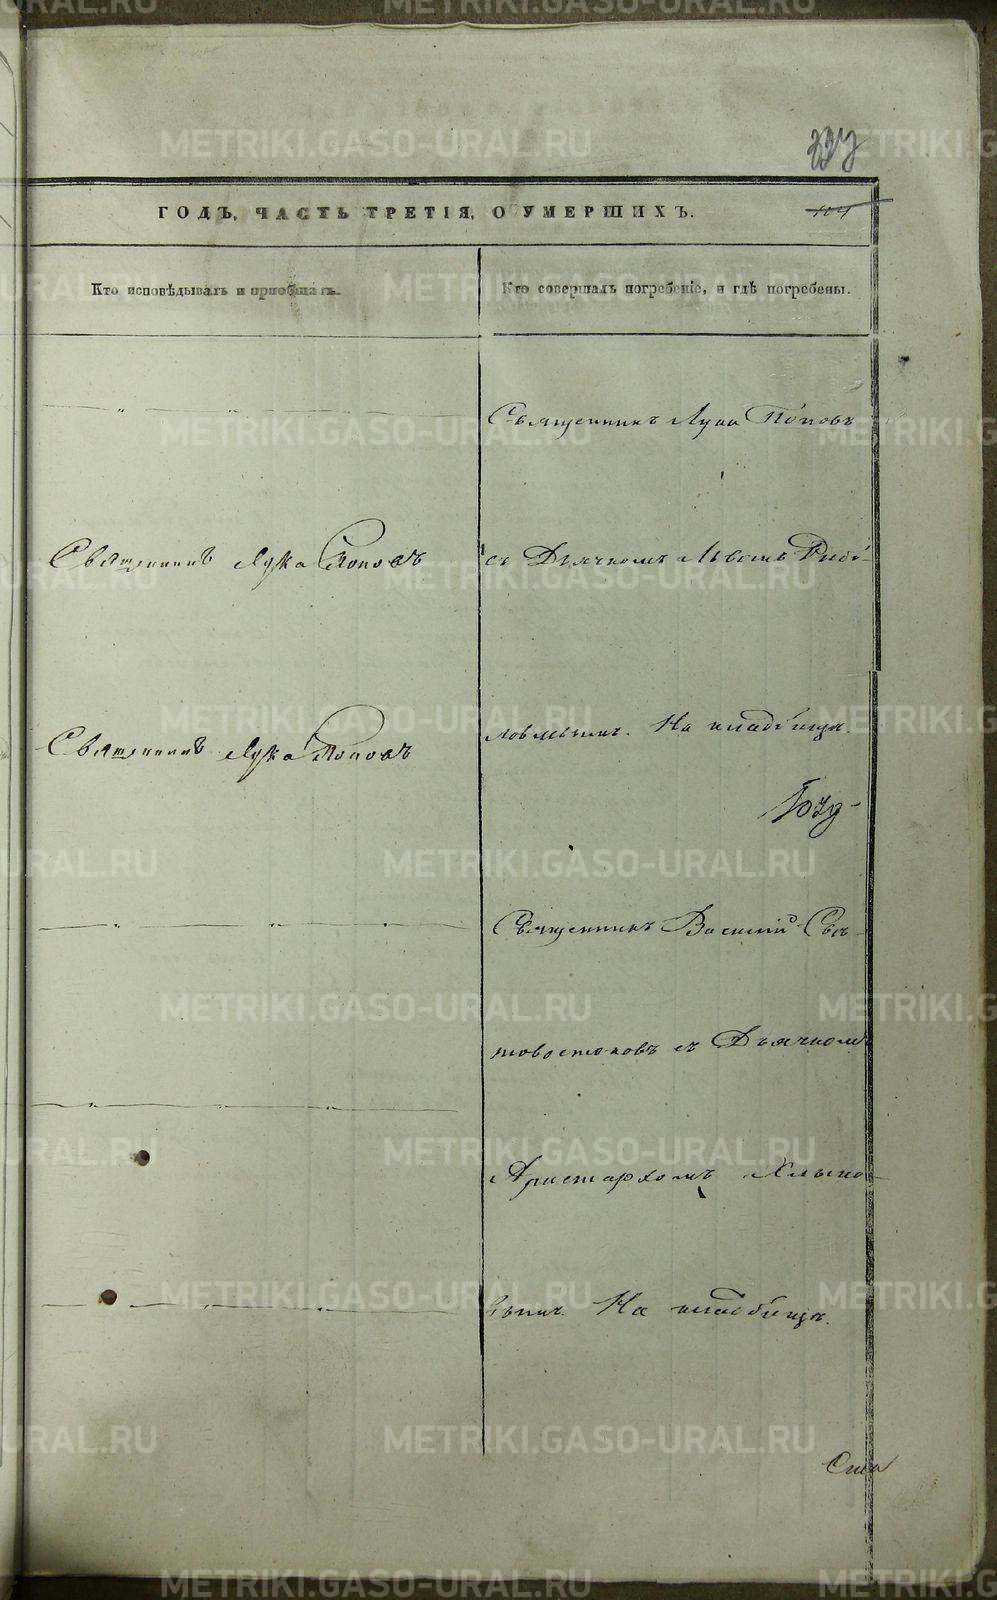 ГОДЪ, ЧАСТЬ ТРЕТІЯ, О УМЕРШИХЪ.
104
Кто исповѣдывалъ и приобщалъ.
Кто совершалъ погребеніе, и гдѣ погребены.
Священникъ Лука Поповъ
Священникъ Лука Поповъ
съ Дьячкомъ Львомъ
Священникъ Лука Поповъ
На кладбищѣ.
Священникъ Василій Свѣ-
товостоковъ съ Дьячкомъ
Аристархомъ Хлыно-
вымъ. На кладбищѣ.
METRIKI.GASO-URAL.RU